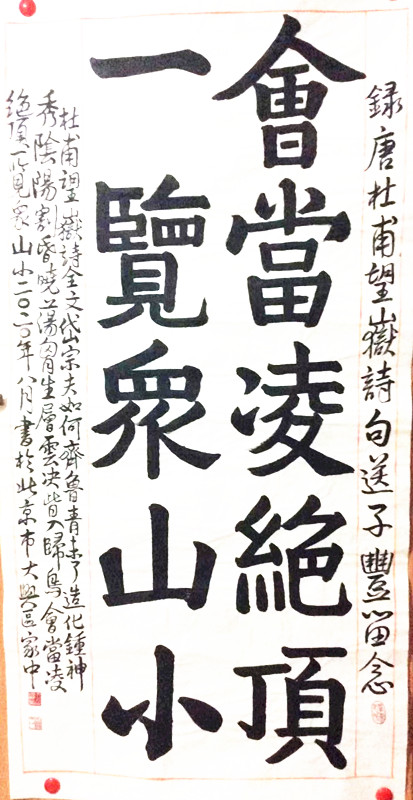 録唐杜甫望嶽詩句送子豐留念
會當凌絕頂
一覽衆山小
杜甫望嶽詩全文岱宗夫如何齊魯青未了造化鍾神
秀陰陽割昏曉盪胸生層雲決眥入歸鳥會當凌
絕頂一覽衆山小二〇二〇年八月書於北京市大興區家中